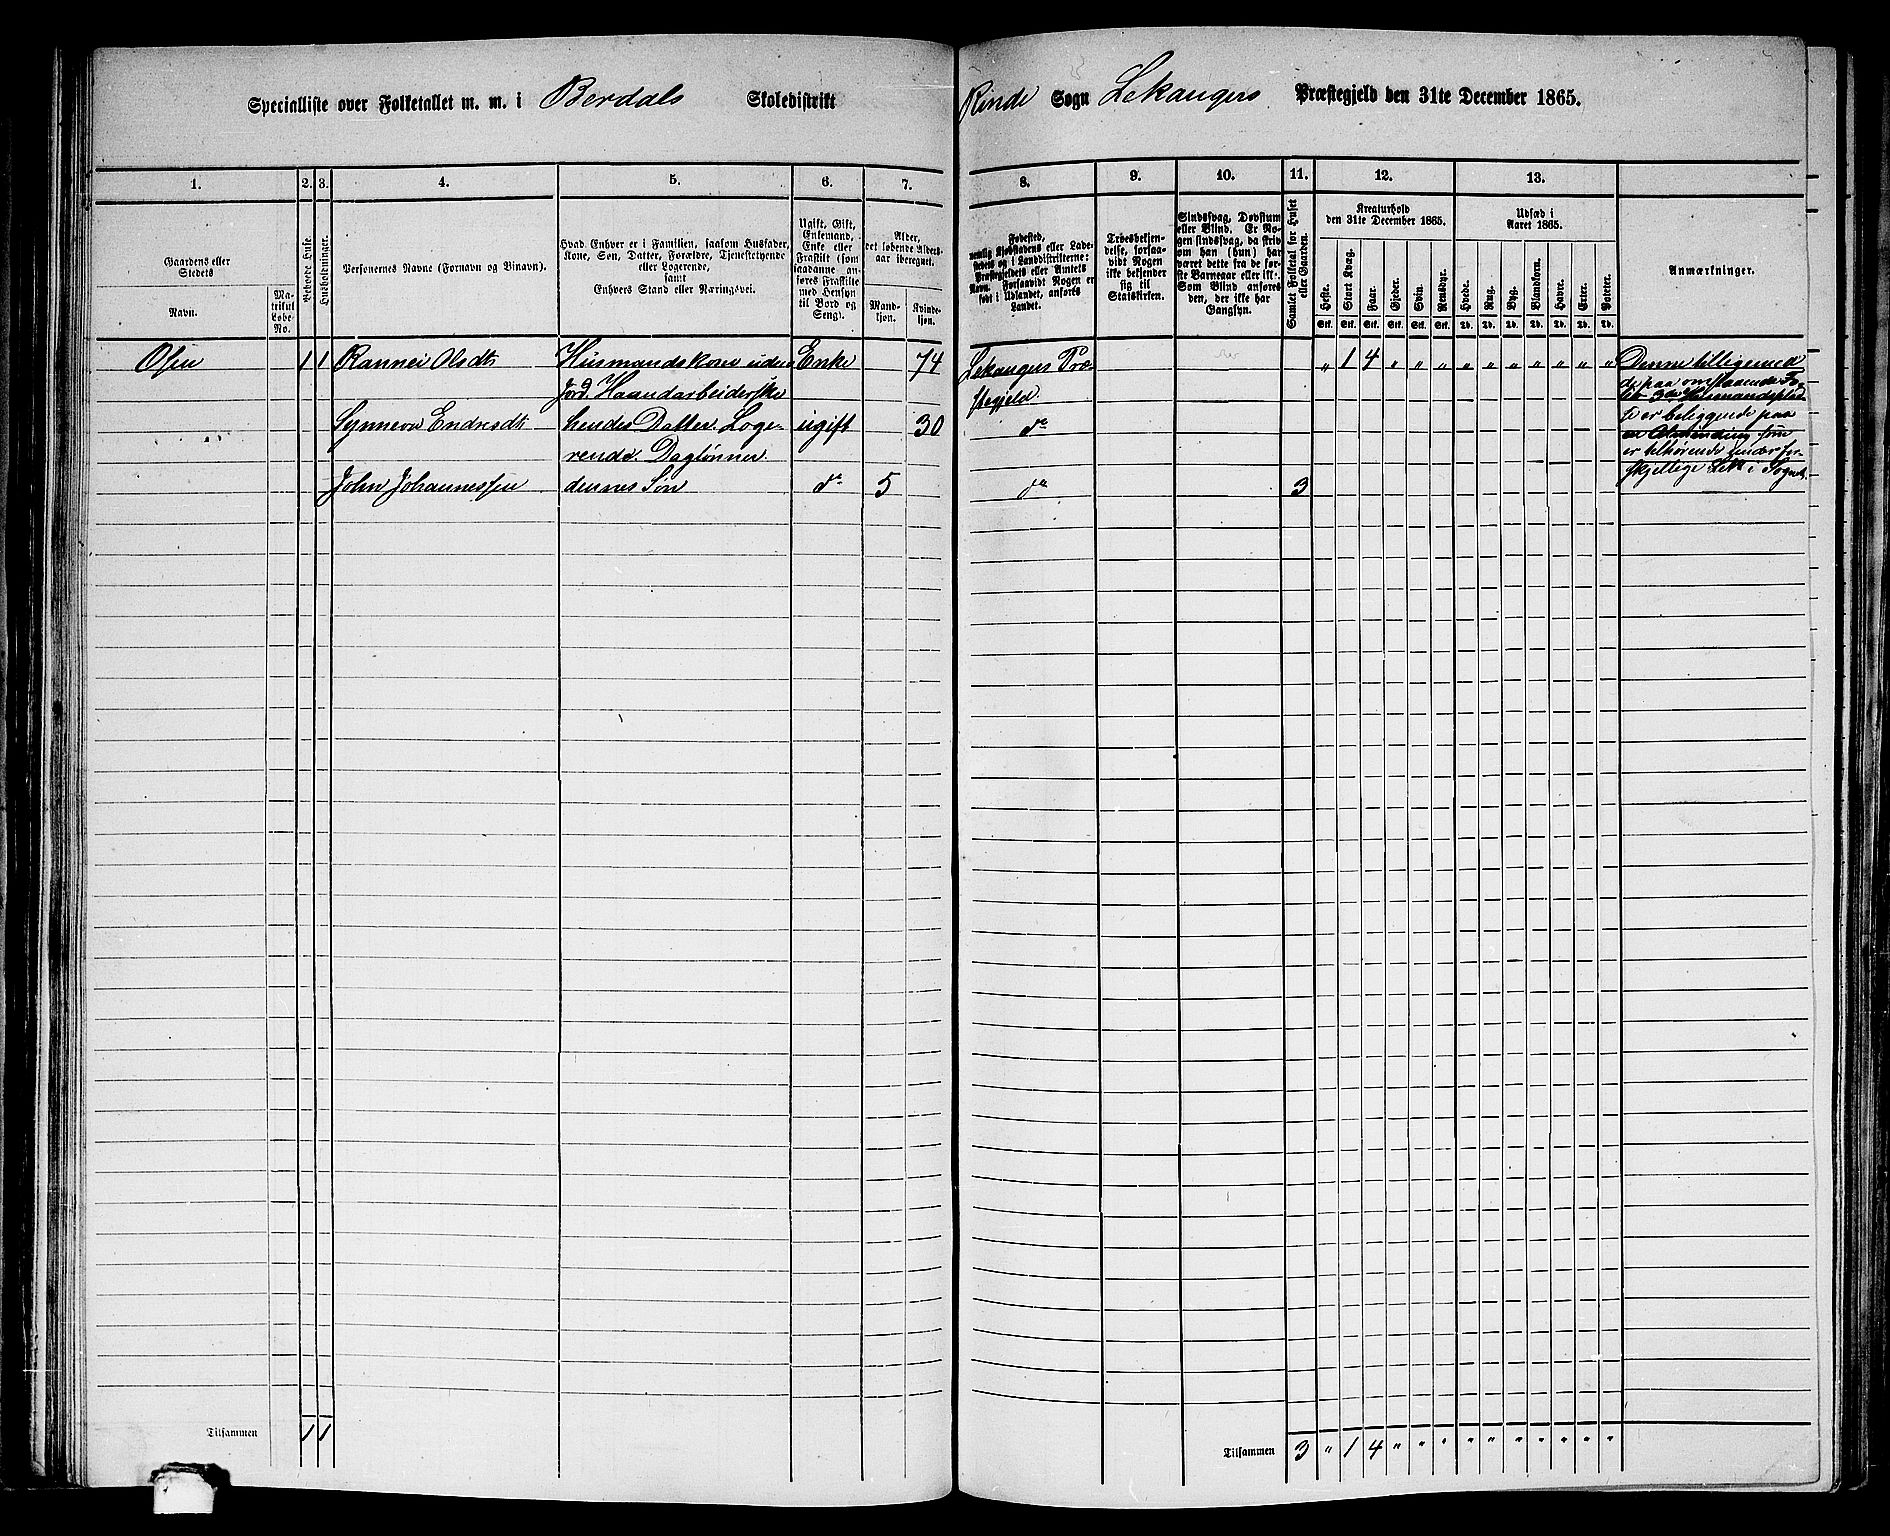 Specialliste over Folketallet m. m. i Berdals Skoledistrikt Rinde Sogn Lekangers Præstegjeld den 31te December 1865.
1. 2. 3. 4. 5. 6. 7. 8. 9. 10. 11. 12. 13.
Gaardens eller Stedets
Navn.
Matrikul Løbe-No.
Beboede Huse.
Husholdninger.
Personernes Navne (Fornavn og Binavn).
Hvad Enhver er i Familien, saasom Husfader,
Kone, Søn, Datter, Forældre, Tjenestetyende
eller Logerende,
samt
Enhvers Stand eller Næringsvei.
Ugift, Gift,
Enkemand,
Enke eller
Fraskilt (som
saadanne anføres
Fraskilte
med Hensyn
til Bord og
Seng).
Alder,
det løbende Aldersaar
iberegnet.
Mandkjøn. Kvindekjøn.
Fødested,
nemlig Kjøbstadens eller Ladestedets
og i Landdistrikterne:
Præstegjeldets eller Amtets
Navn. Forsaavidt Nogen er
født i Udlandet, anføres
Landet.
Troesbekjendelse,
forsaavidt
Nogen
ikke bekjender
sig til
Statskirken.
Sindssvag, Døvstum
eller Blind. Er Nogen
sindssvag, da skriv
om han (hun) har
været dette fra de første
Barneaar eller ikke.
Som Blind anføres
den, der ikke har
Gangsyn.
Samlet Folketal for Huset eller Gaarden.
Kreaturhold
den 31te December 1865.
Heste. Stort Kvæg. Faar. Gjeder. Svin. Rensdyr.
Stk. Stk. Stk. Stk. Stk. Stk.
Udsæd i
Aaret 1865.
Hvede. Rug. Byg. Blandkorn. Havre. Erter. Poteter.
Td. Td. Td. Td. Td. Td. Td.
Anmærkninger.
Osen 1 1 Rannei Olsdtr Husmandskone uden Enke 74 Lekangers Præ- " 1 4 " " " " " " " " " " Denne tilligemed
Jord. Haandarbeiderske stegjeld de paa omstaaende Fo-
lio 3de Husmandsplad-
Synneva Endresdtr hendes Datter. Loge- ugift 30 do se er beliggende paa
en Almending som
rende. Daglønner er tilhørende
John Johannessen dennes Søn do 5 do 3 skjellige i Sognet.
Tilsammen 1 1
Tilsammen 3 " 1 4 " " " " " " " " " "